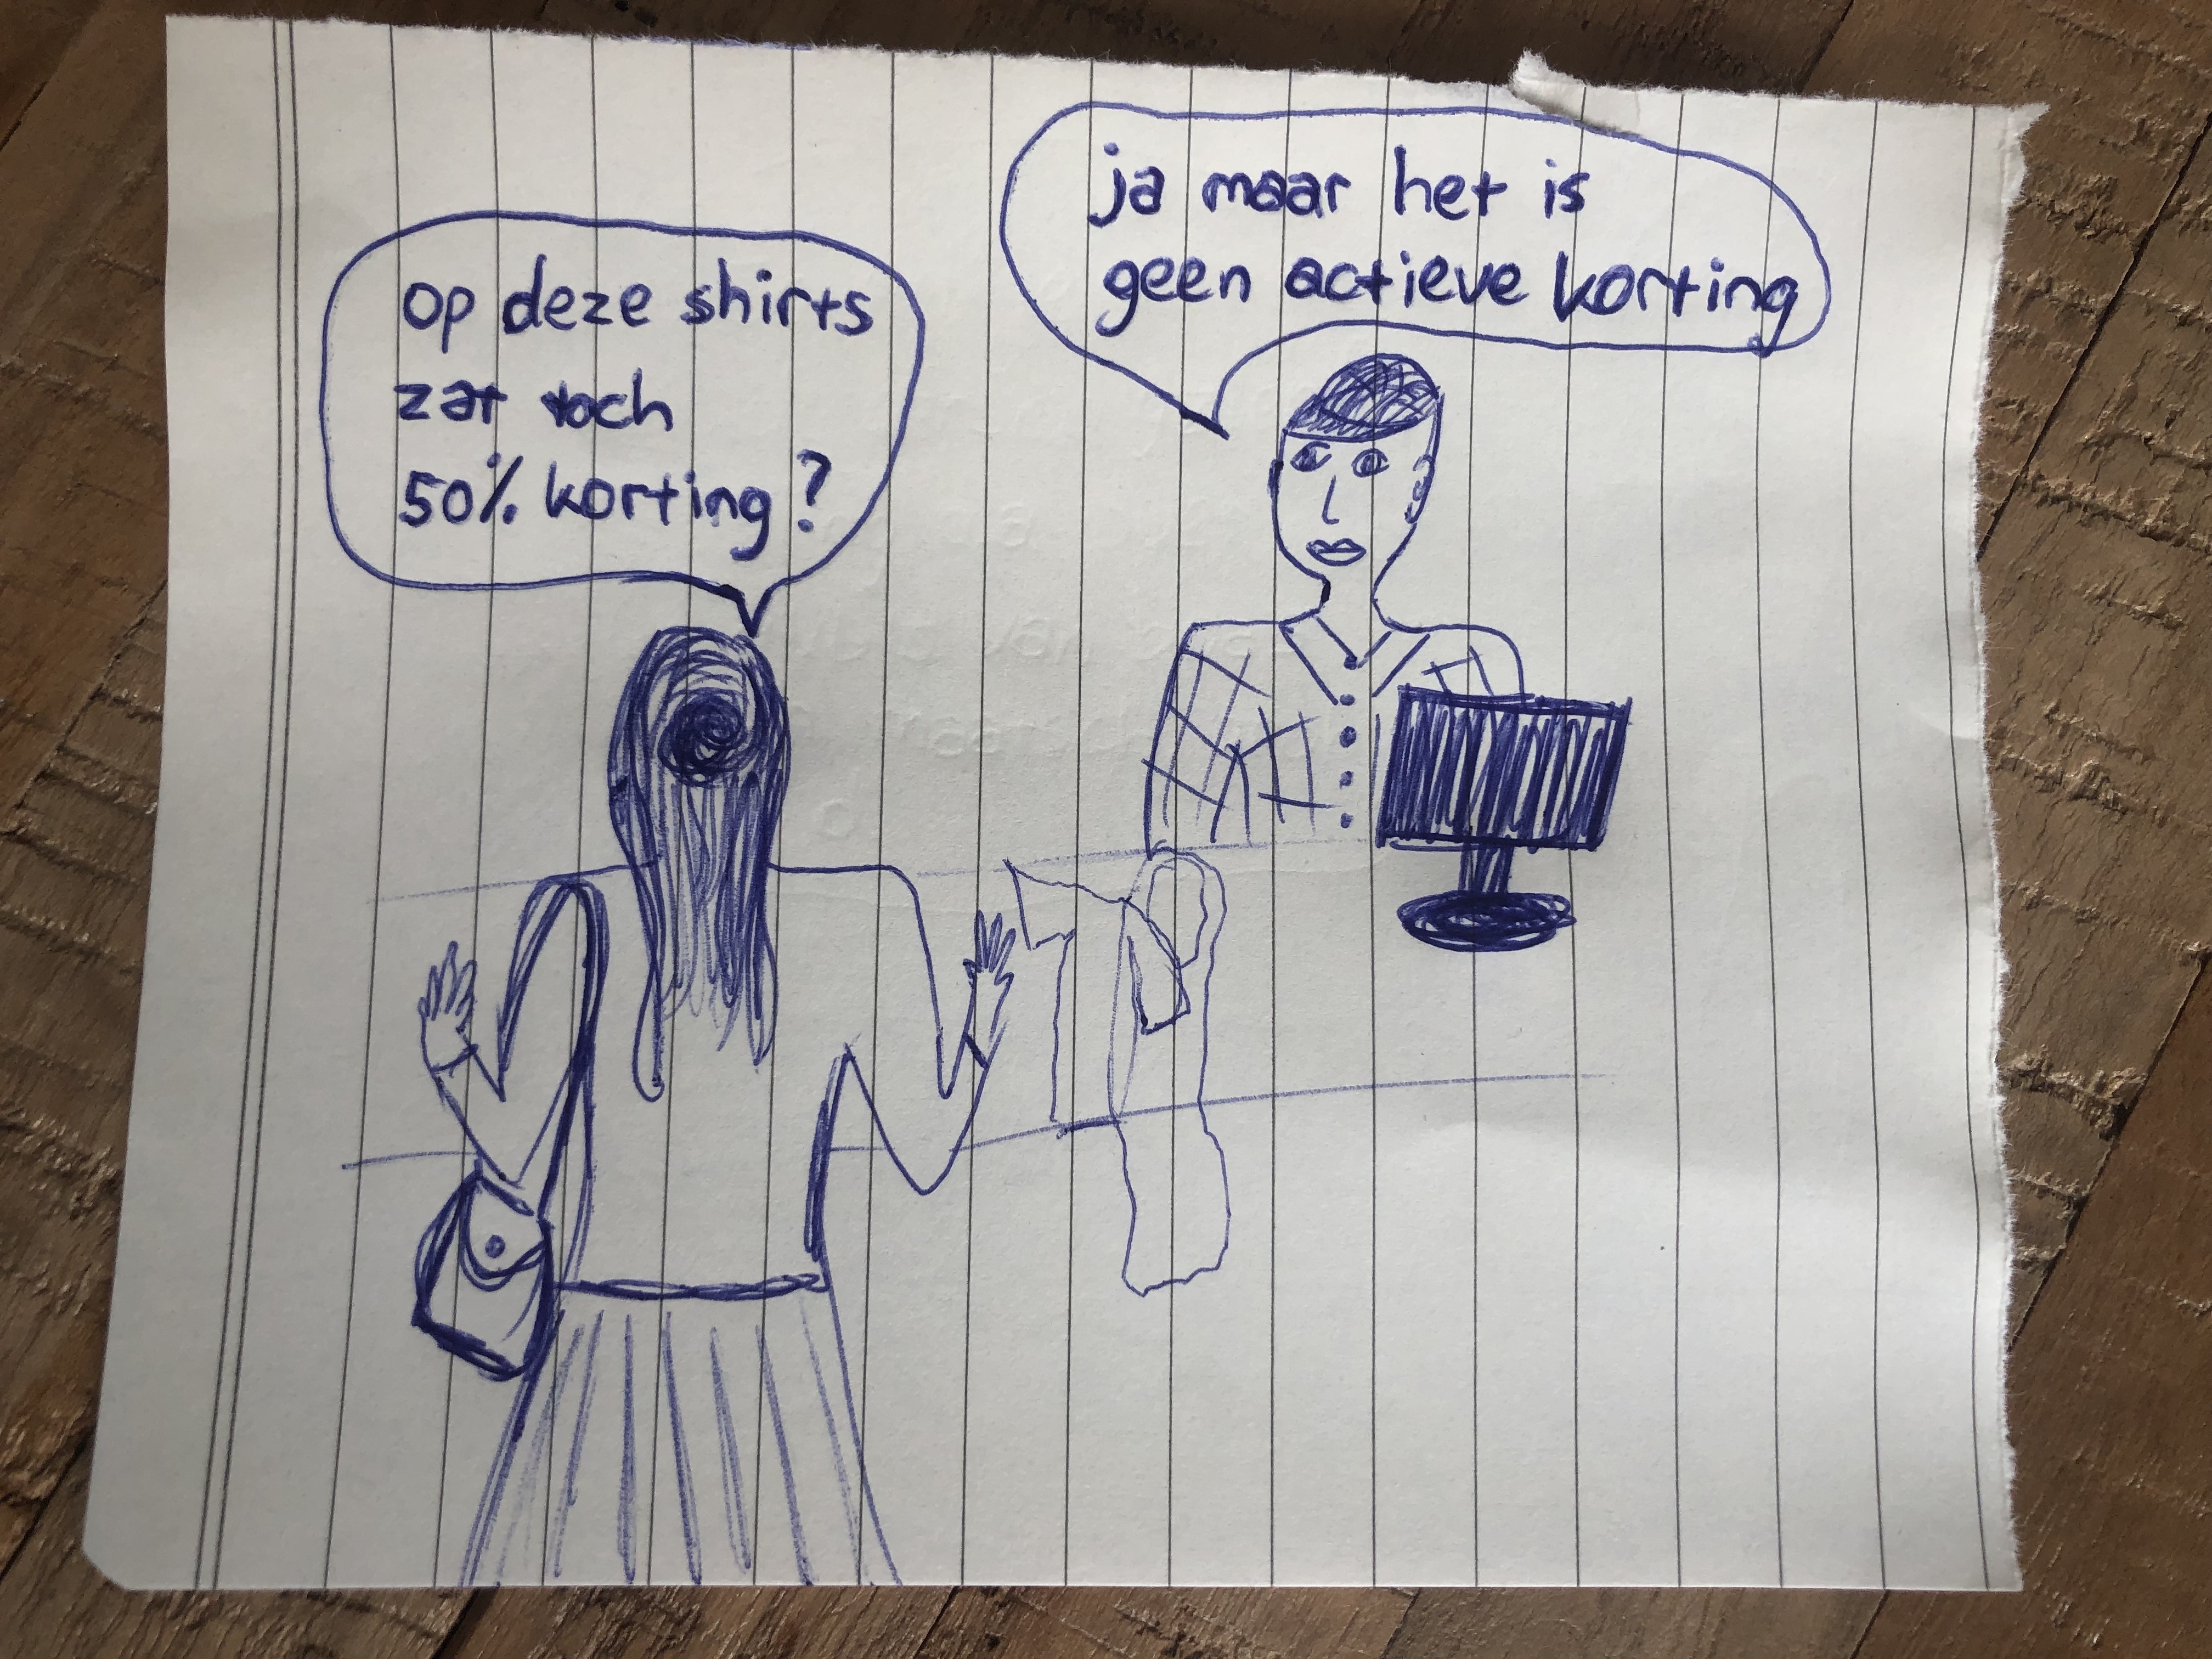 op deze shirts
zat toch
50% korting?
ja maar het is
geen actieve korting